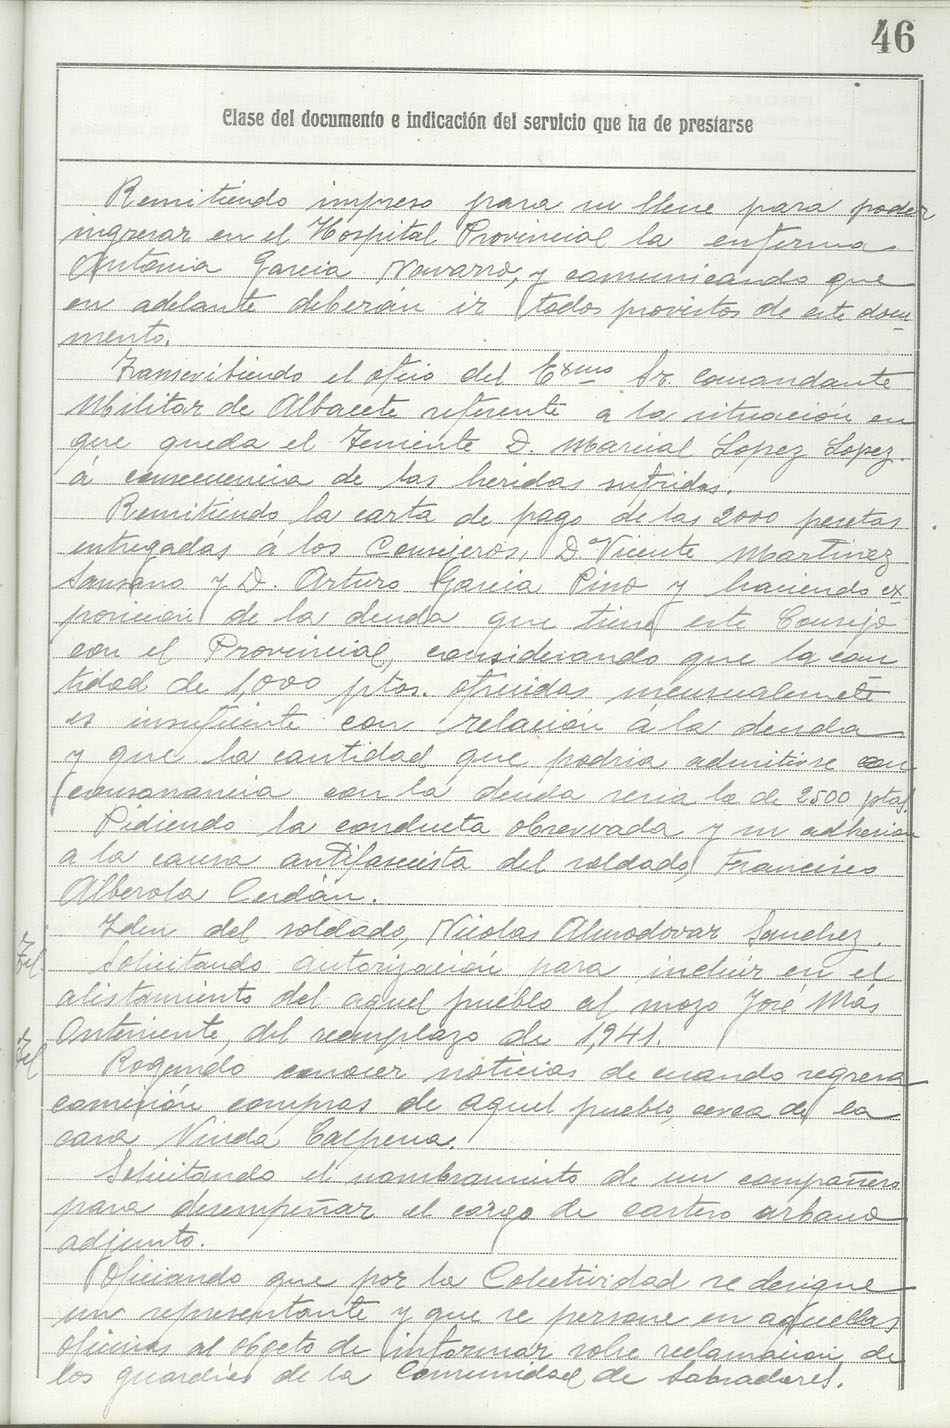 46
Clase del documento e indicación del servicio que ha de prestarse
Remitiendo impreso para su llene para poder
ingresar en el Hospital Provincial la enferma
Antonia Garcia Navarro, y comunicando que
en adelante deberán ir todos provistos de este docu
mento.
Transcribiendo el oficio del Exmo Sr. Comandante
Militar de Albacete referente a la situación en
que queda el Teniente D. Marcial Lopez Lopez
á consecuencia de las heridas sufridas.
Remitiendo la carta de pago de las 2000 pesetas
entregadas a los Consejeros, D Vicente Martinez
Sansano y D. Arturo Garcia Pino y haciendo ex
posición de la deuda que tiene este Consejo
con el Provincial, considerando que la can
tidad de 1,000 ptas. ofrecidas mensualmete
es insuficiente con relación á la deuda
y que la cantidad que podria admitirse con
consonancia con la deuda seria la de 2500 ptas.
Pidiendo la conducta observada y su adhesion
a la causa antifascista del soldado, Francisco
Alberola Cerdán.
Idem del soldado, Nicolas Almodovar Sanchez.
Tel.
Solicitando autorización para incluir en el
alistamiento del aquel pueblo al mozo José Más
Anteniente, del reemplazo de 1,941.
Tel
Rogando conocer noticias de cuando regresa
comisión compras de aquel pueblo, cerca de la
casa Viuda Calpena.
Solicitando el nombramiento de un compañero
para desempeñar el cargo de cartero urbano
adjunto.
Oficiando que por la Colectividad se designe
un representante y que se persone en aquellas
oficinas al objeto de informar sobre reclamación de
los guardias de la Comunidad de Labradores.